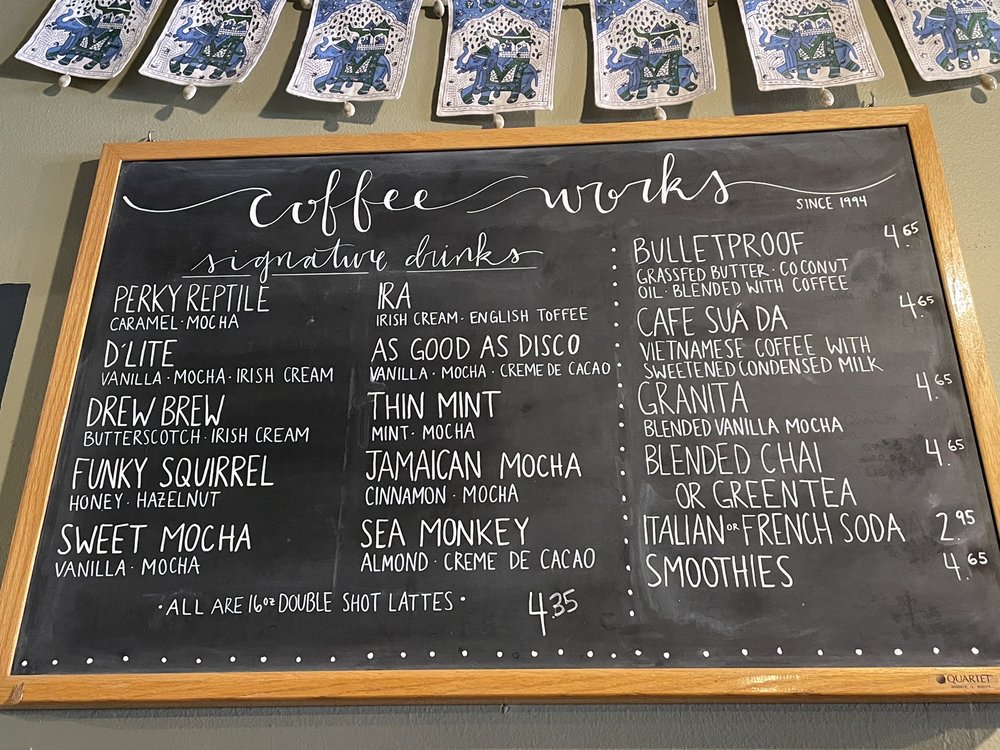 coffee works
SINCE 1994
signature drinks
PERKY REPTILE
CARAMEL · MOCHA
D'LITE
VANILLA · MOCHA · IRISH CREAM
DREW BREW
BUTTERSCOTCH · IRISH CREAM
FUNKY SQUIRREL
HONEY · HAZELNUT
SWEET MOCHA
VANILLA · MOCHA
IRA
IRISH CREAM · ENGLISH TOFFEE
AS GOOD AS DISCO
VANILLA · MOCHA · CREME DE CACAO
THIN MINT
MINT · MOCHA
JAMAICAN MOCHA
CINNAMON · MOCHA
SEA MONKEY
ALMOND · CREME DE CACAO
· ALL ARE 16oz DOUBLE SHOT LATTES · 4.35
BULLETPROOF 4.65
GRASSFED BUTTER · COCONUT
OIL · BLENDED WITH COFFEE
CAFE SUÁ DA 4.65
VIETNAMESE COFFEE WITH
SWEETENED CONDENSED MILK
GRANITA 4.65
BLENDED VANILLA MOCHA
BLENDED CHAI 4.65
OR GREEN TEA
ITALIAN OR FRENCH SODA 2.95
SMOOTHIES 4.65
QUARTET